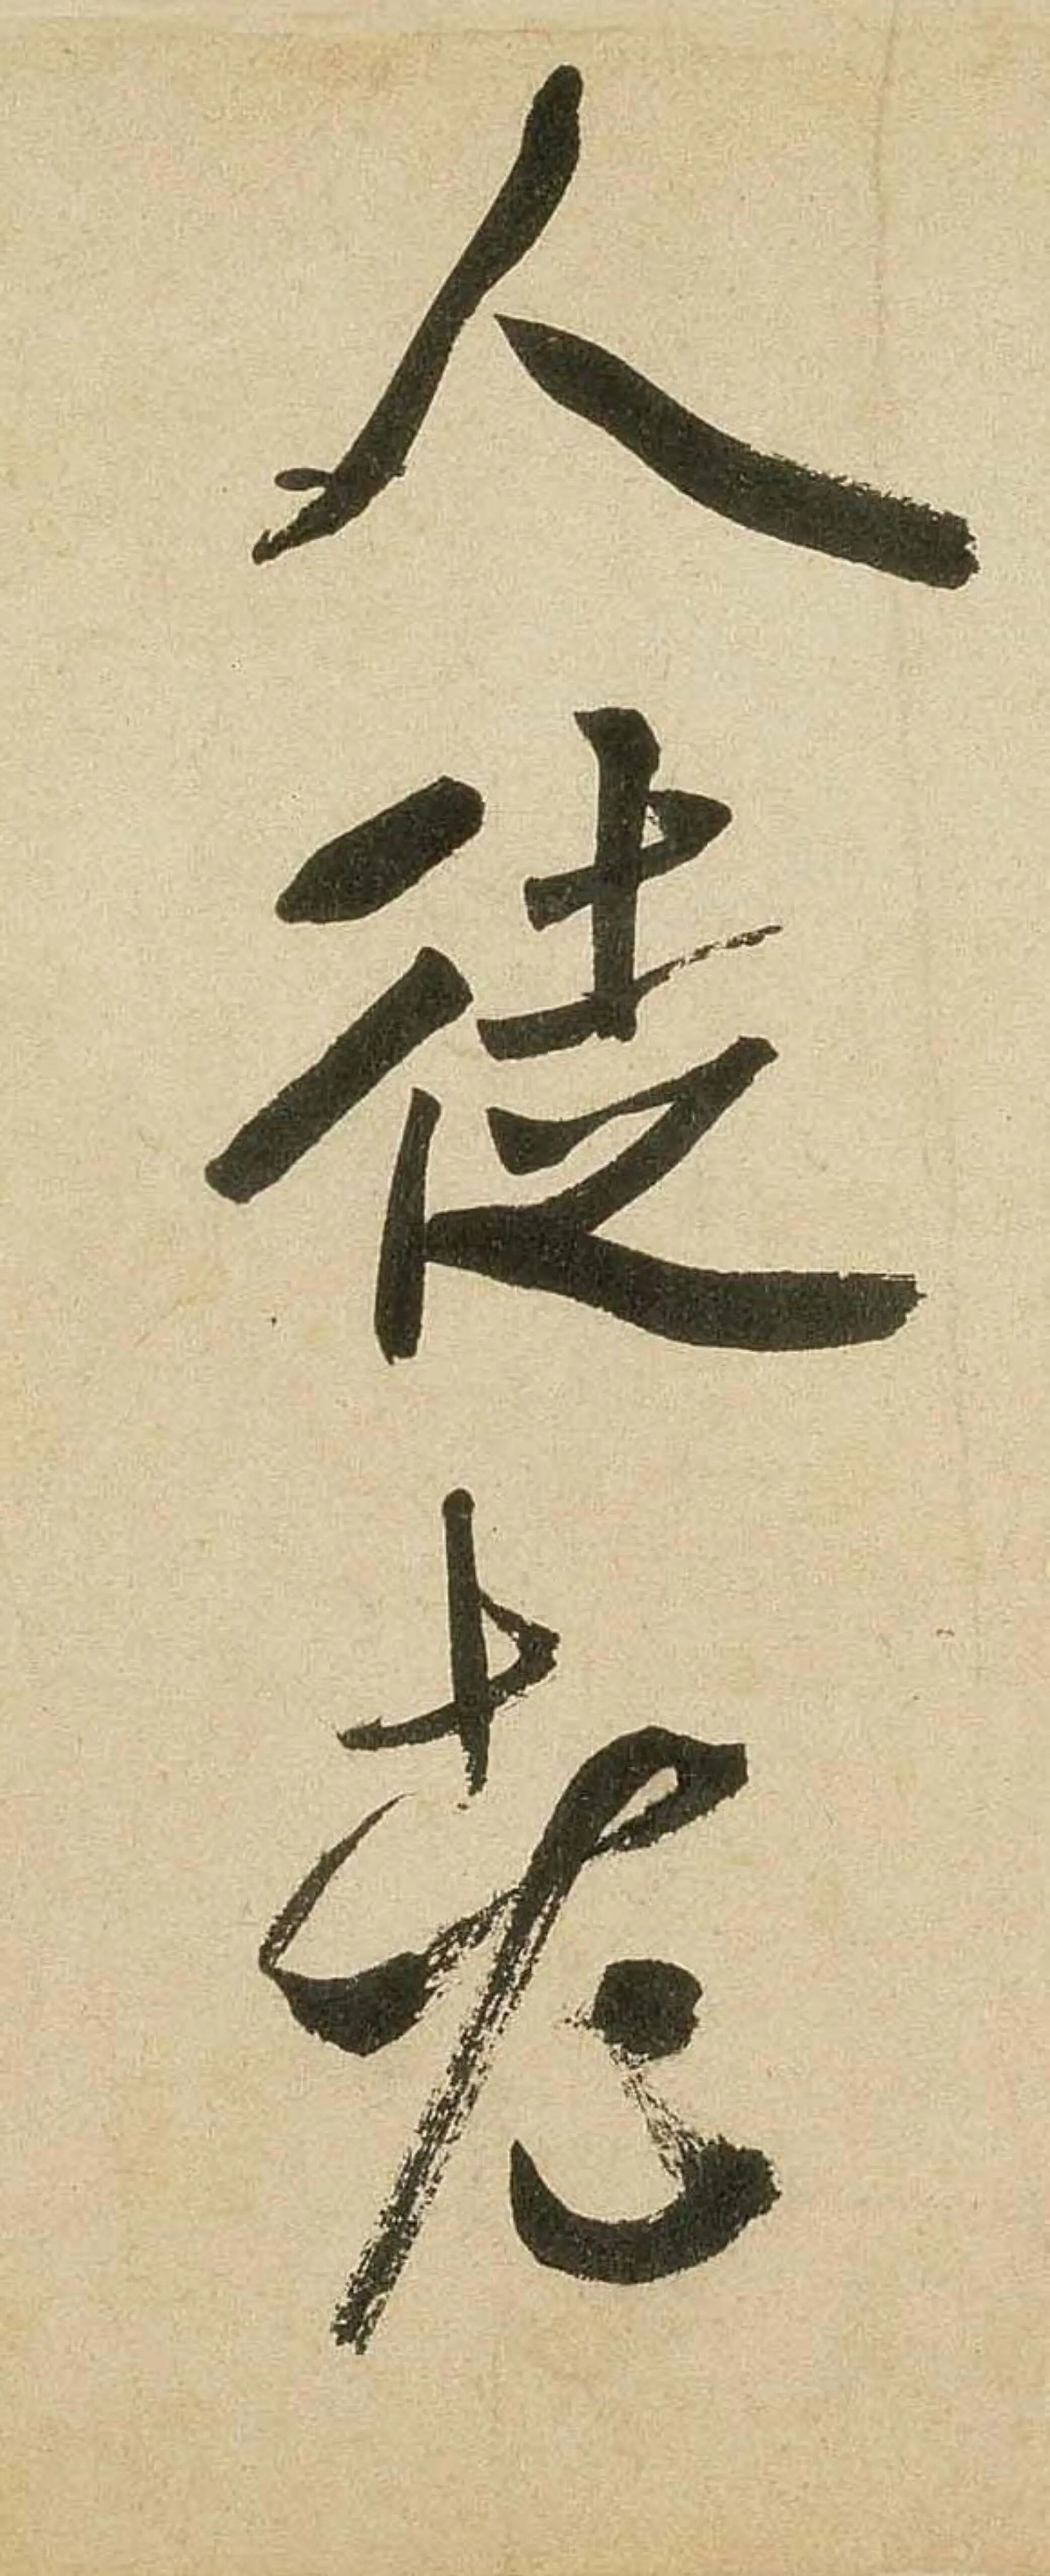 人徒老